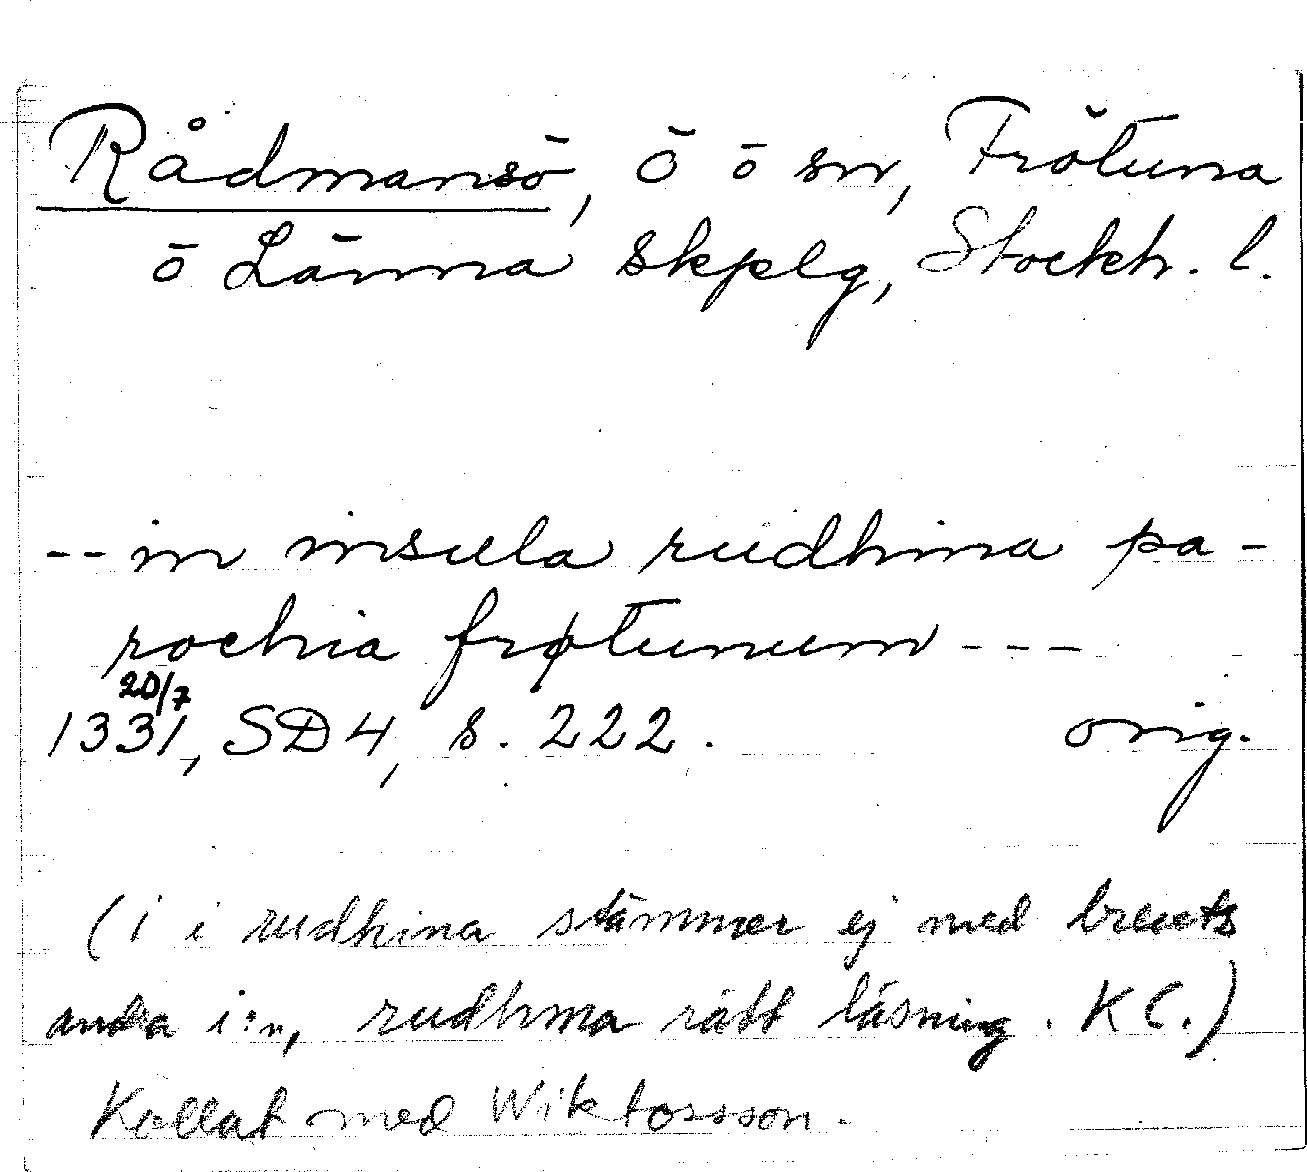 Rådmansö, ö o sn, Frötuna
o Länna skplg, Stockh. l.
-- in insula rudhina pa-
rochia frøtunum ---
20/7
1331, SD 4, s. 222. orig.
(i i rudhina stämmer ej med brevets
andra i:n, rudhma rätt läsning. KC.)
Kollat med Wiktorsson.